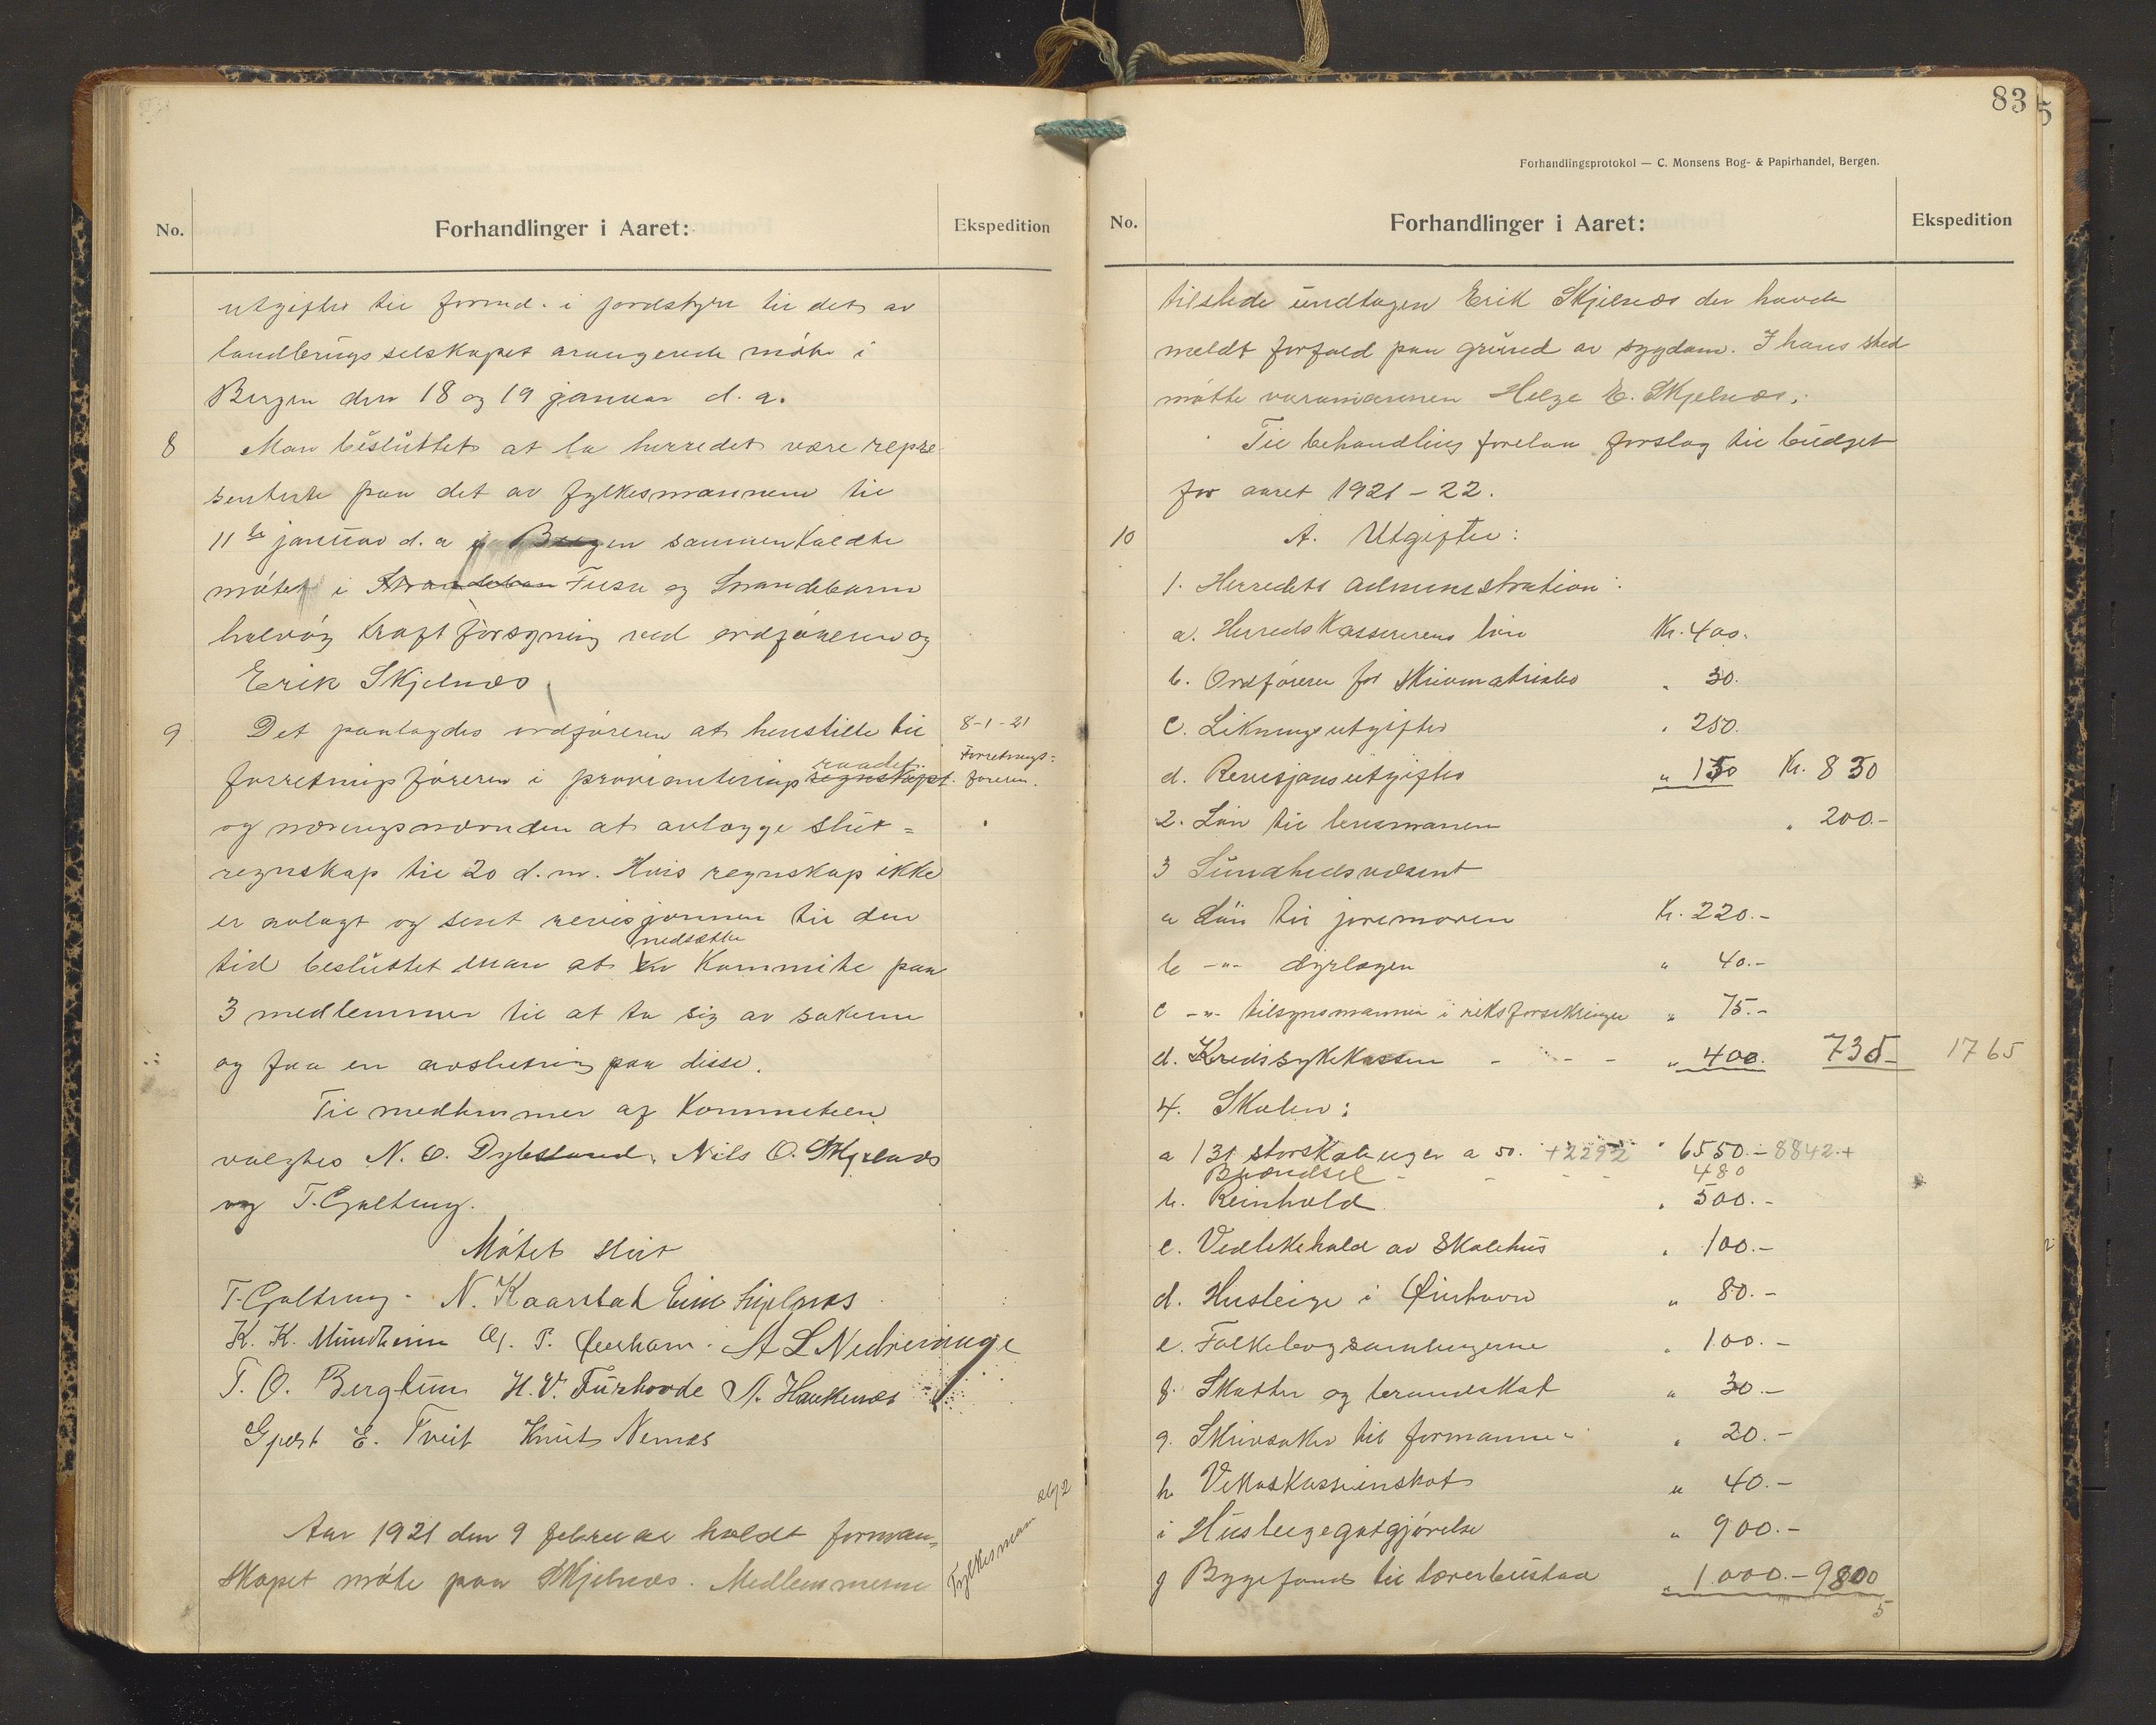 No. Forhandlinger i Aaret: Ekspedition
utgifter til formd. i jordstyre til det av
landbrugsselskapet arangerede møte i
Bergen den 18 og 19 januar d. a.
8 Man besluttet at la herredet være repre-
senterte paa det av fylkesmannen til
11te januar d. a i Bergen sammenkaldte
møtet i Strandebarm Fuse og Strandebarm
halvøy Kraftforsyning ved ordføreren og
Erik Skjelnæs
9 Det paalagdes ordføreren at henstille til 8-1-21
raadet. Forretnings-
forretningsføreren i provianterings regnskapet. føreren.
og næringsnævnden at avlægge slut=
regnskap til 20 d. m. Hvis regnskap ikke
er avlagt og sent revisjonen til den
nedsætte
tid besluttet man at en Kommite paa
3 medlemmer til at ta sig av sakerne
og faa en avslutning paa disse.
Til medlemmer af Kommiteen
valgtes N. O. Dybsland, Nils O. Skjelnæs
og T. Galtung.
Møtet slut
T. Galtung. N. Kaarstad Erik Skjelnæs
K. K. Mundheim O. P. Øierhavn. A L Nedrevaage
T. O. Berglun H. V. Furhovde A. Haukenæs
Gjert E. Tveit Knut Nernes
Aar 1921 den 9 februar holdt forman=
skapet møte paa Skjelnæs. Medlemmerne
Fylkesmann
83
5
Forhandlingsprotokol — C. Monsens Bog- & Papirhandel, Bergen.
No. Forhandlinger i Aaret: Ekspedition
tilstede undtagen Erik Skjelnæs der havde
meldt forfald paa grund av sygdom. I hans sted
møtte varamannen Helge E. Skjelnæs.
Til behandling forelaa forslag til budget
for aaret 1921-22.
10 A. Utgifter:
1. Herredets administration:
a. Herredskassererens løn Kr. 400.
b. Ordføreren for skrivmatrialer " 30.
c. Likningsutgifter " 250.
d. Revisjonsutgifter " 150 Kr. 830
2. Løn til lensmannen " 200.-
3 Sundhedsvæsent
a Løn til joremoren Kr. 220.-
b -"- dyrlægen " 40.-
c -"- tilsynsmannen i riksforsikringen " 75.-
d. Kredssykekassen - - - " 400. 735- 1765
4. Skolen:
a 131 storskoleuger a 50. +2292 " 6550.- 8842.+
Brændsel - - - - 480
b. Reinhold " 500.-
c. Vedlikehold av Skolehus " 100.-
d. Husleige i Øirhavn " 80.-
e. Folkebogsamlingerne " 100.-
f. Skatter og brandskat " 30.-
g. Skrivsaker til formannen " 20.-
h Vikaskassenskat " 40.-
i Husleigegodtgjørelse " 900.-
j Byggefond til lærerbustad " 1.000.- 9800
5